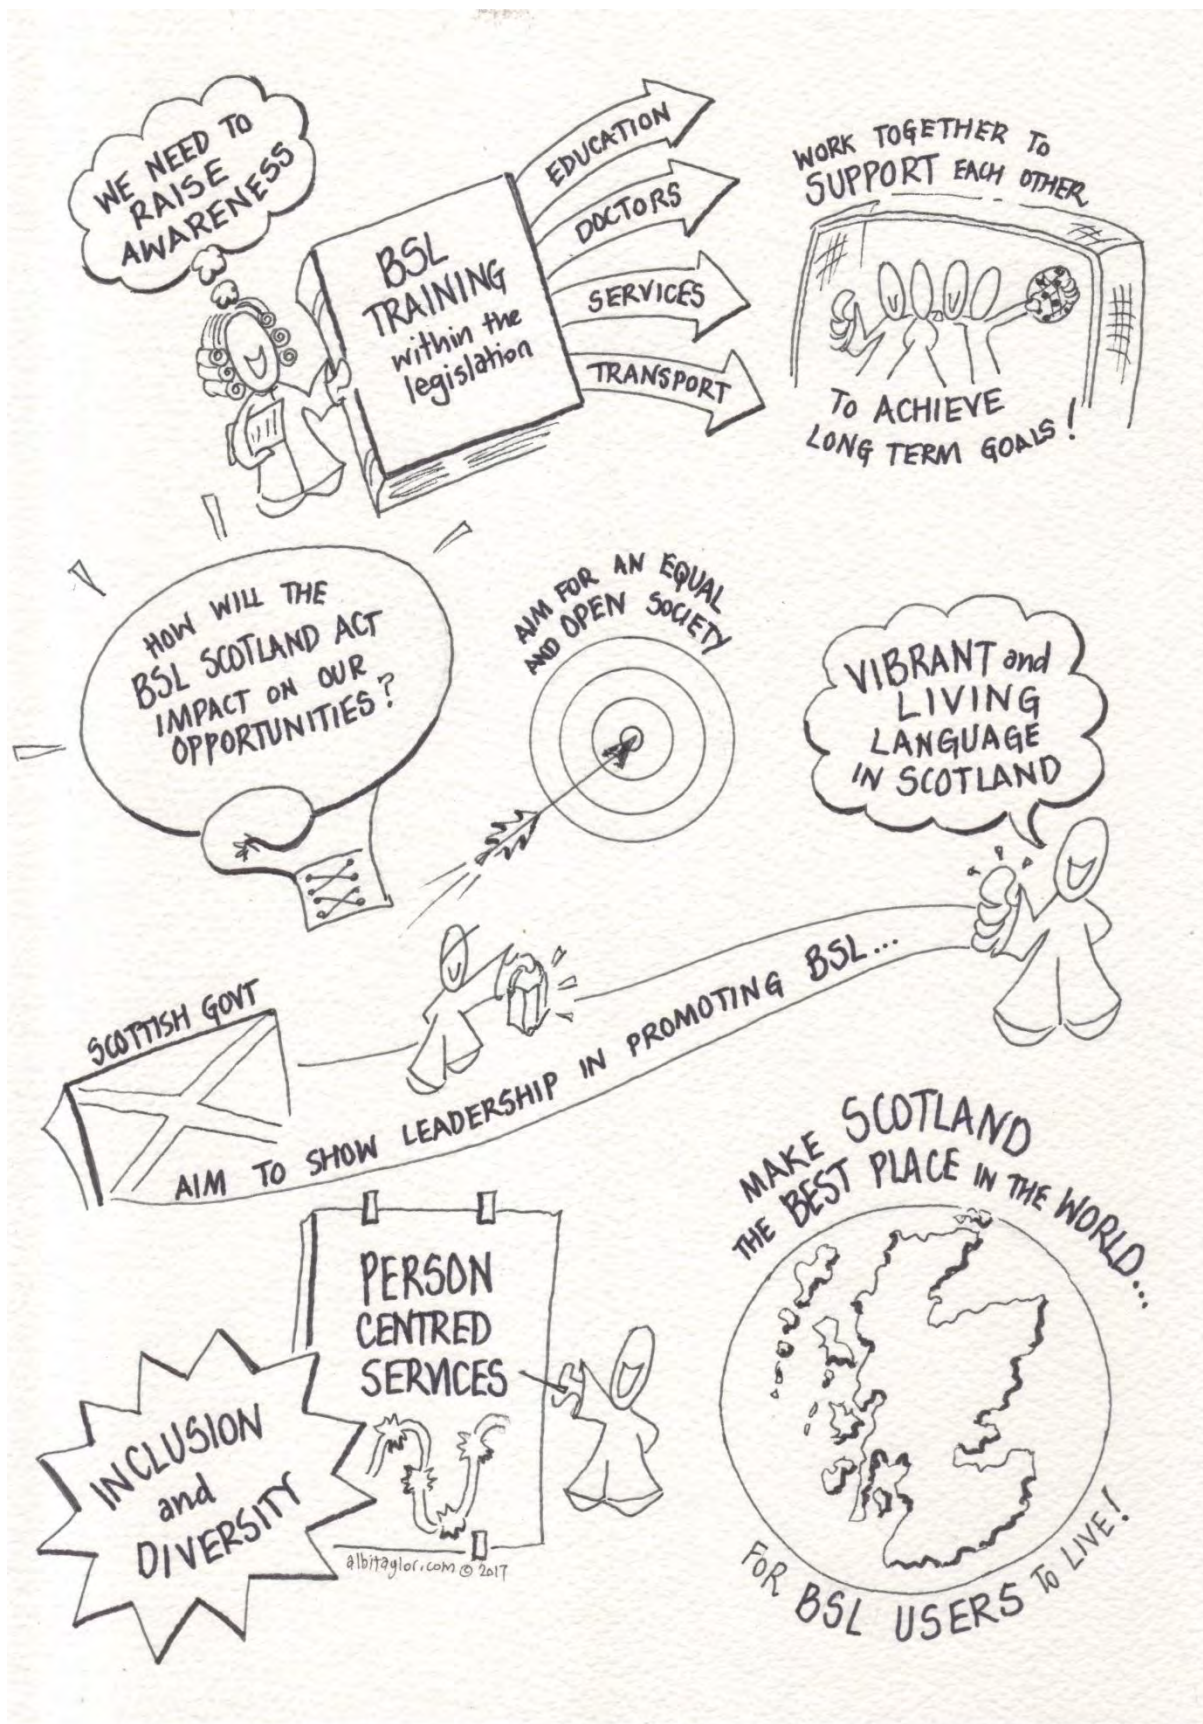 WE NEED TO
RAISE
AWARENESS
BSL
TRAINING
within the
legislation
EDUCATION
DOCTORS
SERVICES
TRANSPORT
WORK TOGETHER TO
SUPPORT EACH OTHER
TO ACHIEVE
LONG TERM GOALS!
HOW WILL THE
BSL SCOTLAND ACT
IMPACT ON OUR
OPPORTUNITIES?
AIM FOR AN EQUAL
AND OPEN SOCIETY
VIBRANT and
LIVING
LANGUAGE
IN SCOTLAND
SCOTTISH GOVT
AIM TO SHOW LEADERSHIP IN PROMOTING BSL...
PERSON
CENTRED
SERVICES
INCLUSION
and
DIVERSITY
albitaylor.com © 2017
MAKE SCOTLAND
THE BEST PLACE IN THE WORLD...
FOR BSL USERS TO LIVE!